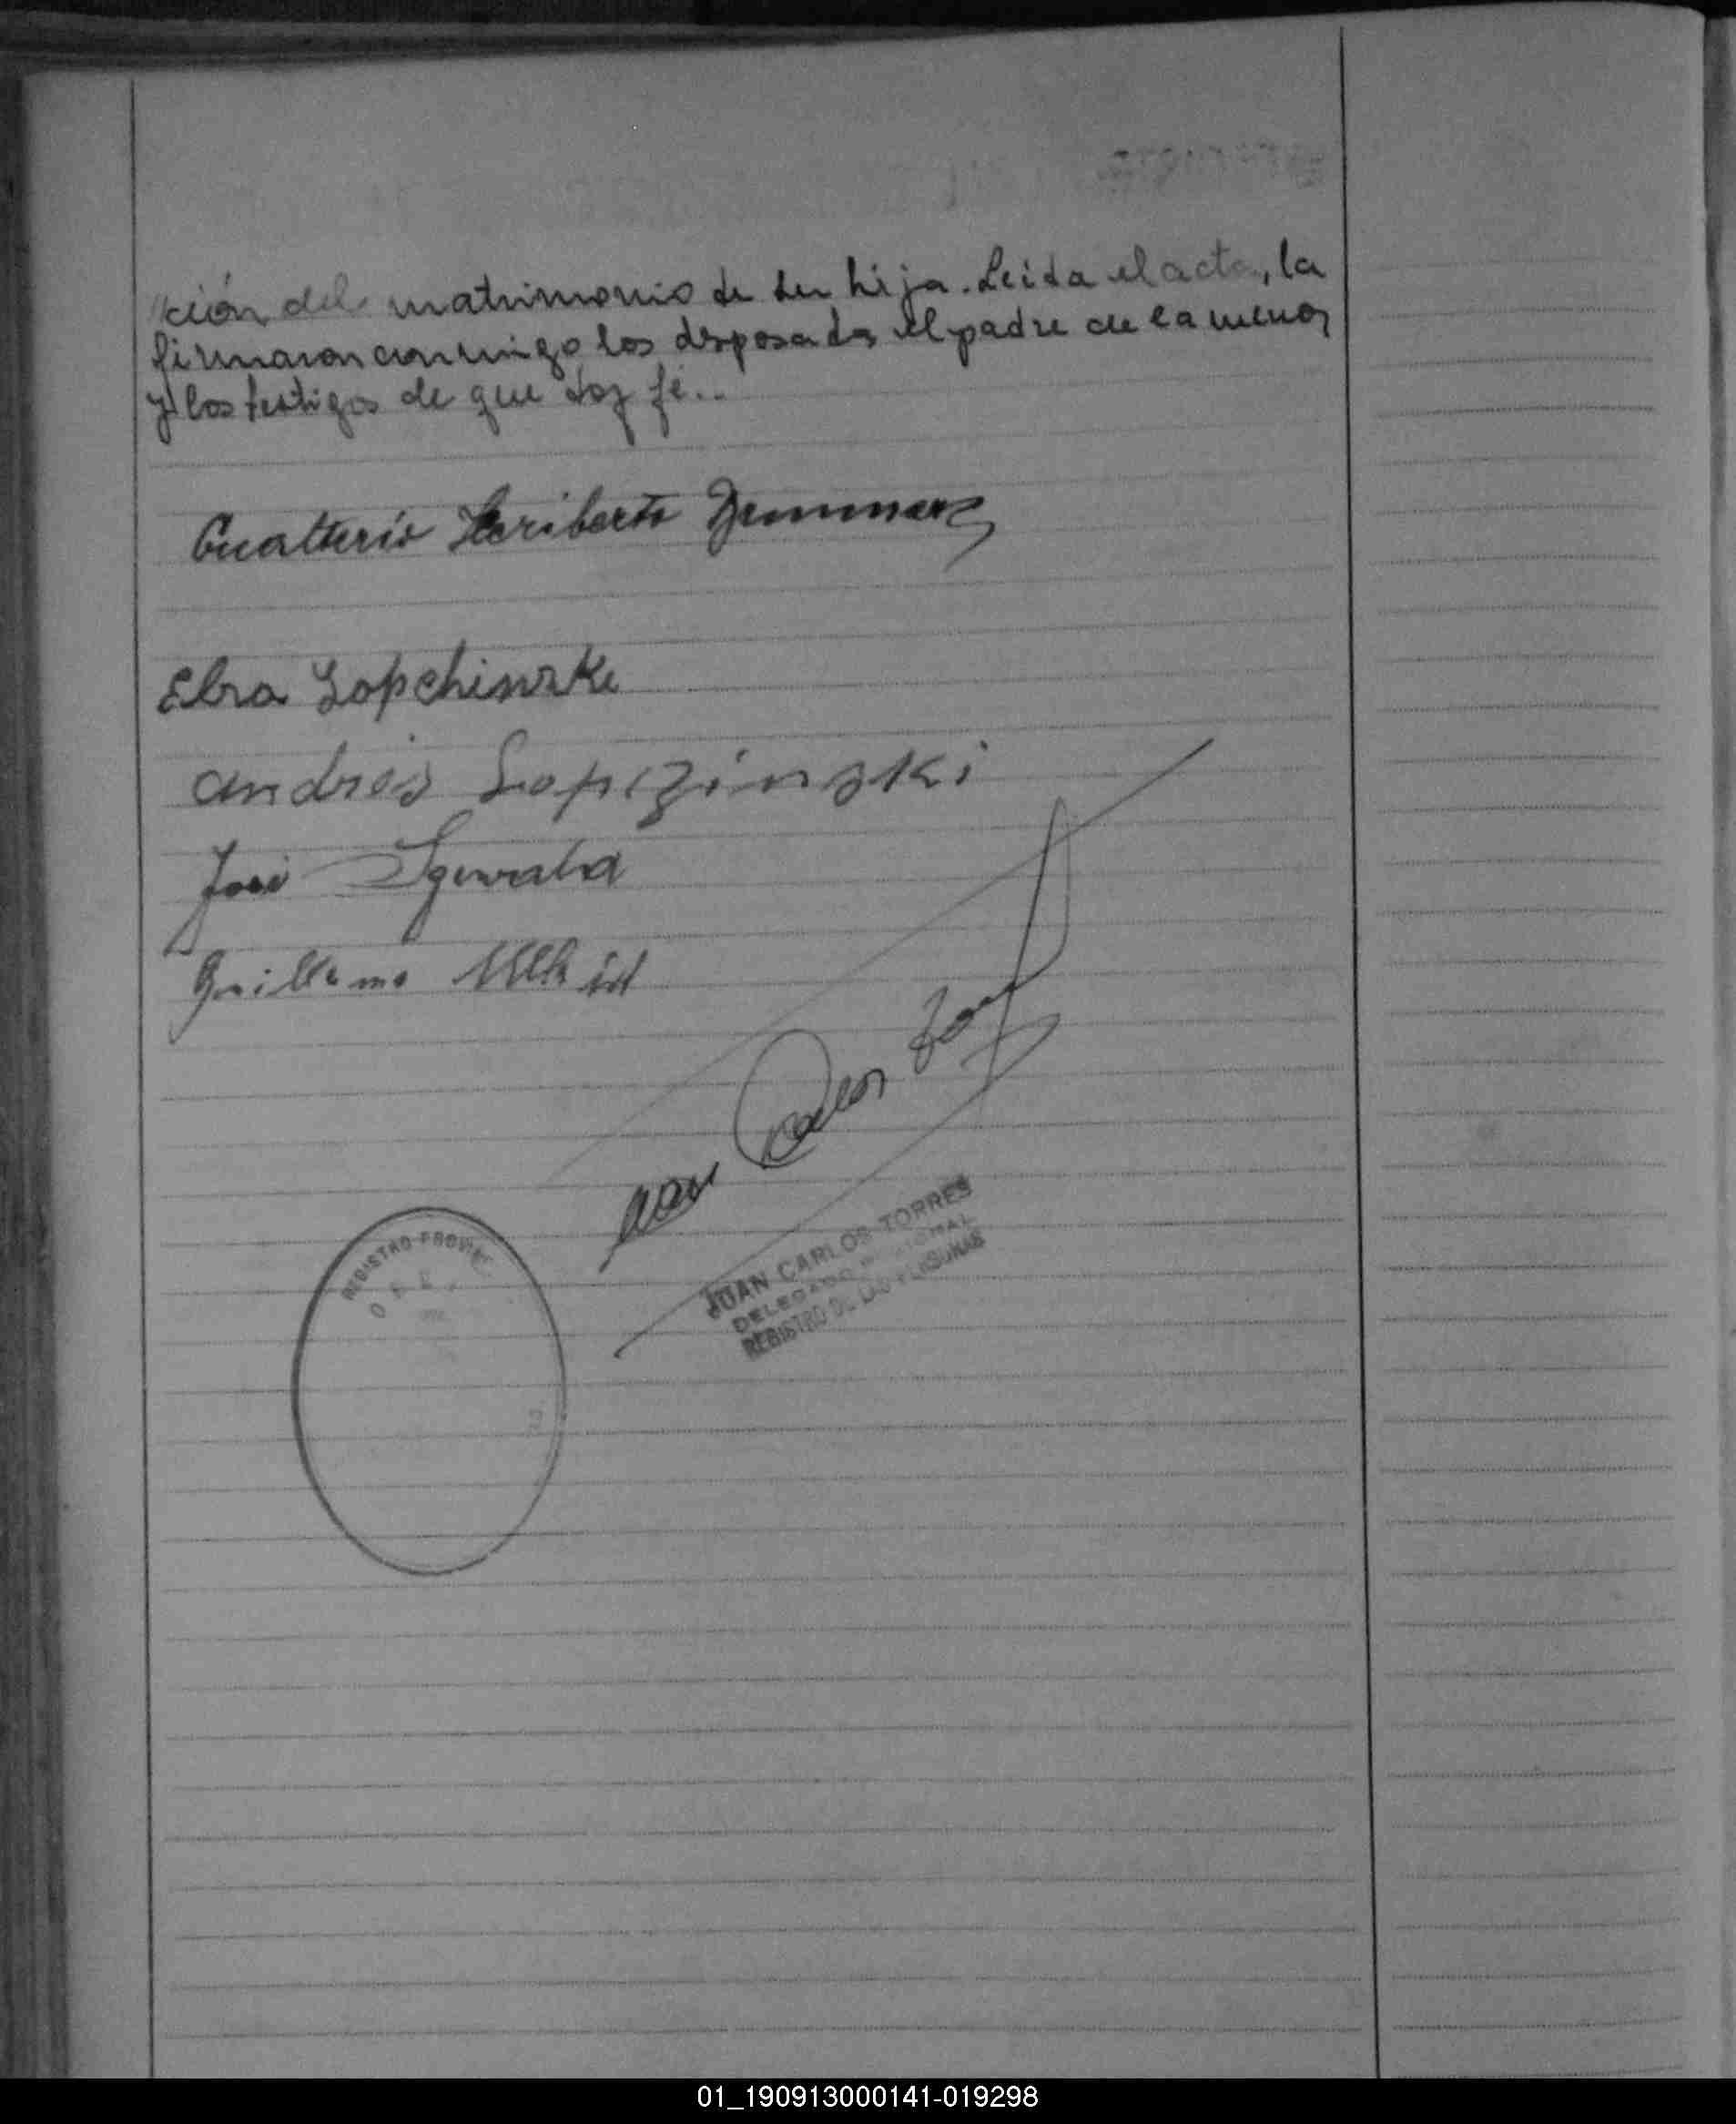 ción del matrimonio de su hija. Leida el acta, la
firmaron conmigo los desposados el padre de la menor
y los testigos de que doy fé..
Gualterio Heriberto
Elsa Lopchinske
Andrés Lopczinski
José
Guillermo
Juan Carlos
JUAN CARLOS TORRES
DELEGADO
REGISTRO DE LAS PERSONAS
REGISTRO PROVINC
01_190913000141-019298